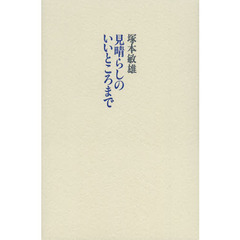 塚本敏雄
見晴らしの
いいところまで